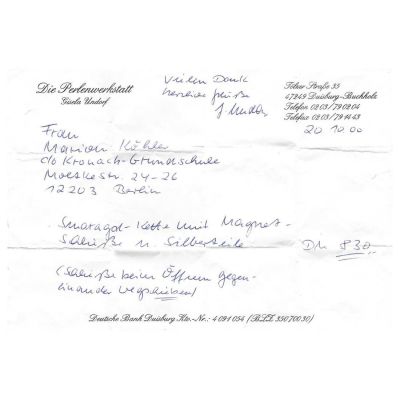 Die Perlenwerkstatt
Gisela Undorf
Vielen Dank
herzliche Grüße
G. Undorf
Tölzer Straße 35
47249 Duisburg-Buchholz
Telefon 02 03/79 02 04
Telefax 02 03/79 11 43
20.10.00
Frau
Marion Köhler
c/o Kronach-Grundschule
Moltkestr. 24-26
12203 Berlin
Smaragd-Kette mit Magnet-
Schließe u. Silberteile
DM 830.-
(Schließe beim Öffnen gegen-
einander wegschieben)
Deutsche Bank Duisburg Kto.-Nr.: 4 091 054 (BLZ 350 700 30)